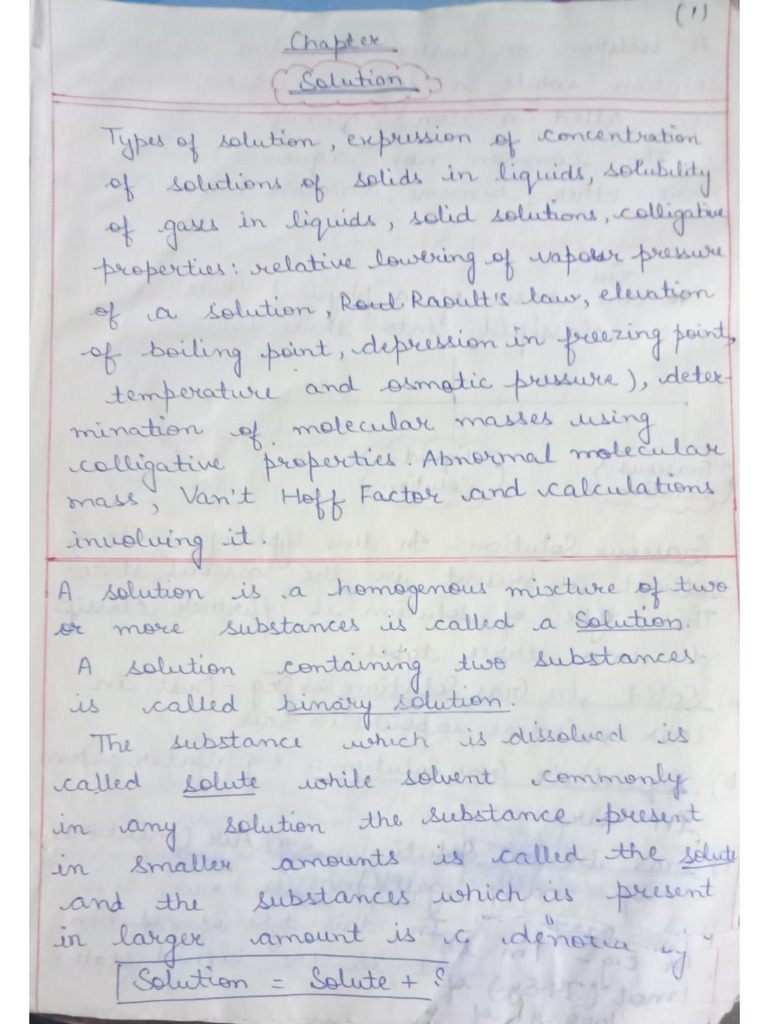 (1)
Chapter
Solution
Types of solution, expression of concentration
of solutions of solids in liquids, solubility
of gases in liquids, solid solutions, colligative
properties: relative lowering of vapour pressure
of a solution, Raoult's law, elevation
of boiling point, depression in freezing point,
temperature and osmotic pressure), deter-
mination of molecular masses using
colligative properties. Abnormal molecular
mass, Van't Hoff Factor and calculations
involving it.
A solution is a homogenous mixture of two
or more substances is called a Solution.
A solution containing two substances
is called binary solution.
The substance which is dissolved is
called solute while solvent commonly
in any solution the substance present
in smaller amounts is called the solute
and the substances which is present
in larger amount is
Solution = Solute +